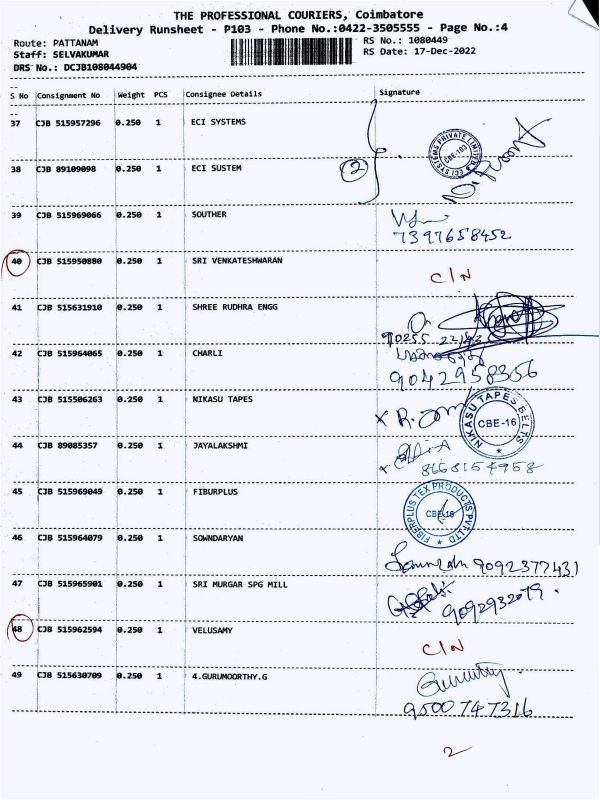 THE PROFESSIONAL COURIERS, Coimbatore
Delivery Runsheet - P103 - Phone No.:0422-3505555 - Page No.:4
Route: PATTANAM RS No.: 1080449
Staff: SELVAKUMAR RS Date: 17-Dec-2022
DRS No.: DCJB108044904
S No Consignment No Weight PCS Consignee Details Signature
37 CJB 515957296 0.250 1 ECI SYSTEMS
ECI SYSTEMS PRIVATE LIMITED CBE-103
38 CJB 89109098 0.250 1 ECI SUSTEM 2
39 CJB 515969066 0.250 1 SOUTHER
7397658452
40 CJB 515950880 0.250 1 SRI VENKATESHWARAN
C/N
41 CJB 515631910 0.250 1 SHREE RUDHRA ENGG
90255 22193
42 CJB 515964065 0.250 1 CHARLI
9042958356
43 CJB 515506263 0.250 1 NIKASU TAPES
NIKASU TAPES BELTS CBE-16
44 CJB 89085357 0.250 1 JAYALAKSHMI
8668154958
45 CJB 515969049 0.250 1 FIBURPLUS
FIBERPLUS TEX PRODUCTS PVT LTD CBE-16
46 CJB 515964079 0.250 1 SOWNDARYAN
9092377431
47 CJB 515965901 0.250 1 SRI MURGAR SPG MILL
9092932079
48 CJB 515962594 0.250 1 VELUSAMY
C/N
49 CJB 515630709 0.250 1 4.GURUMOORTHY.G
9500747316
2